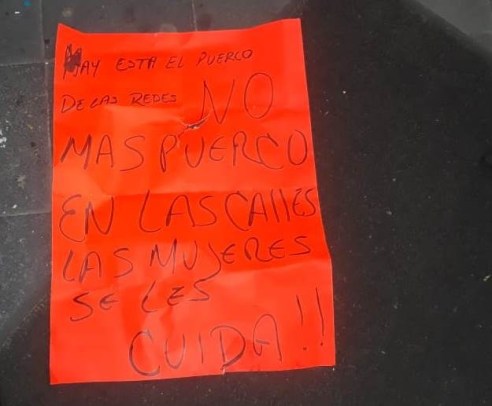 HAY ESTA EL PUERCO
DE LAS REDES NO
MAS PUERCO
EN LAS CALLES
LAS MUJERES
SE LES
CUIDA!!